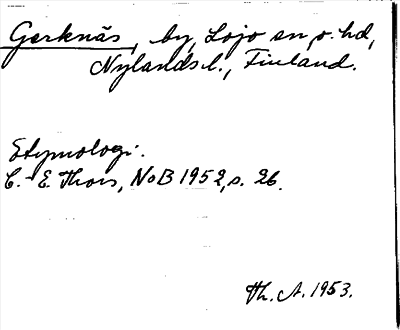 Gerknäs, by, Lojo sn o. hd,
Nylands l., Finland.
Etymologi.
C.-E. Thors, NoB 1952, s. 26.
Th. A. 1953.